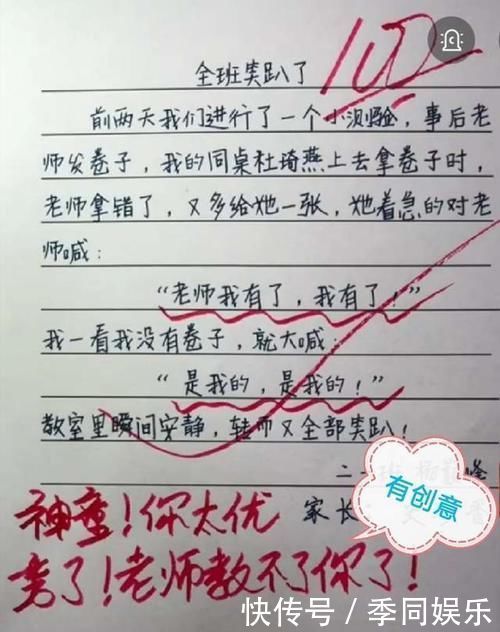 全班笑趴了
100
前两天我们进行了一个小测验，事后老
师发卷子，我的同桌杜琦燕上去拿卷子时，
老师拿错了，又多给她一张，她着急的对老
师喊：
“老师我有了，我有了！”
我一看我没有卷子，就大喊：
“是我的，是我的！”
教室里瞬间安静，转而又全部笑趴！
二一班
家长：
有创意
神童！你太优
秀了！老师教不了你了！
快传号／季同娱乐